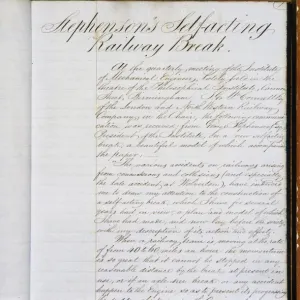 Stephenson's Selfacting
Railway Break.
At the quarterly meeting of the Institute
of Mechanical Engineers lately held in the
theatre of the Philosophical Institute, Cannon
Street, Birmingham, Mr McConnell
of the London and North Western Railway
Company, in the Chair, the following communi-
cation was received from George Stephenson
President of the Institute, on a new selfacting
break, a beautiful model of which accompanied
the Paper.
"The various accidents on railways arising
from and collisions (and especially
the late accident at Wolverton) have induced
me to draw my attention to the consideration of
a self-acting break, which I have for several
years had in view: a plan and model of which
I have had made, and now lay before the society
with my description of its action and effects.
When a railway train is moving at the rate
of from 40 to 60 miles an hour the momentum
is so great that it cannot be stopped in any
reasonable distance by the breaks at present in
use, as if an
happens to the Engine so as to prevent its progress